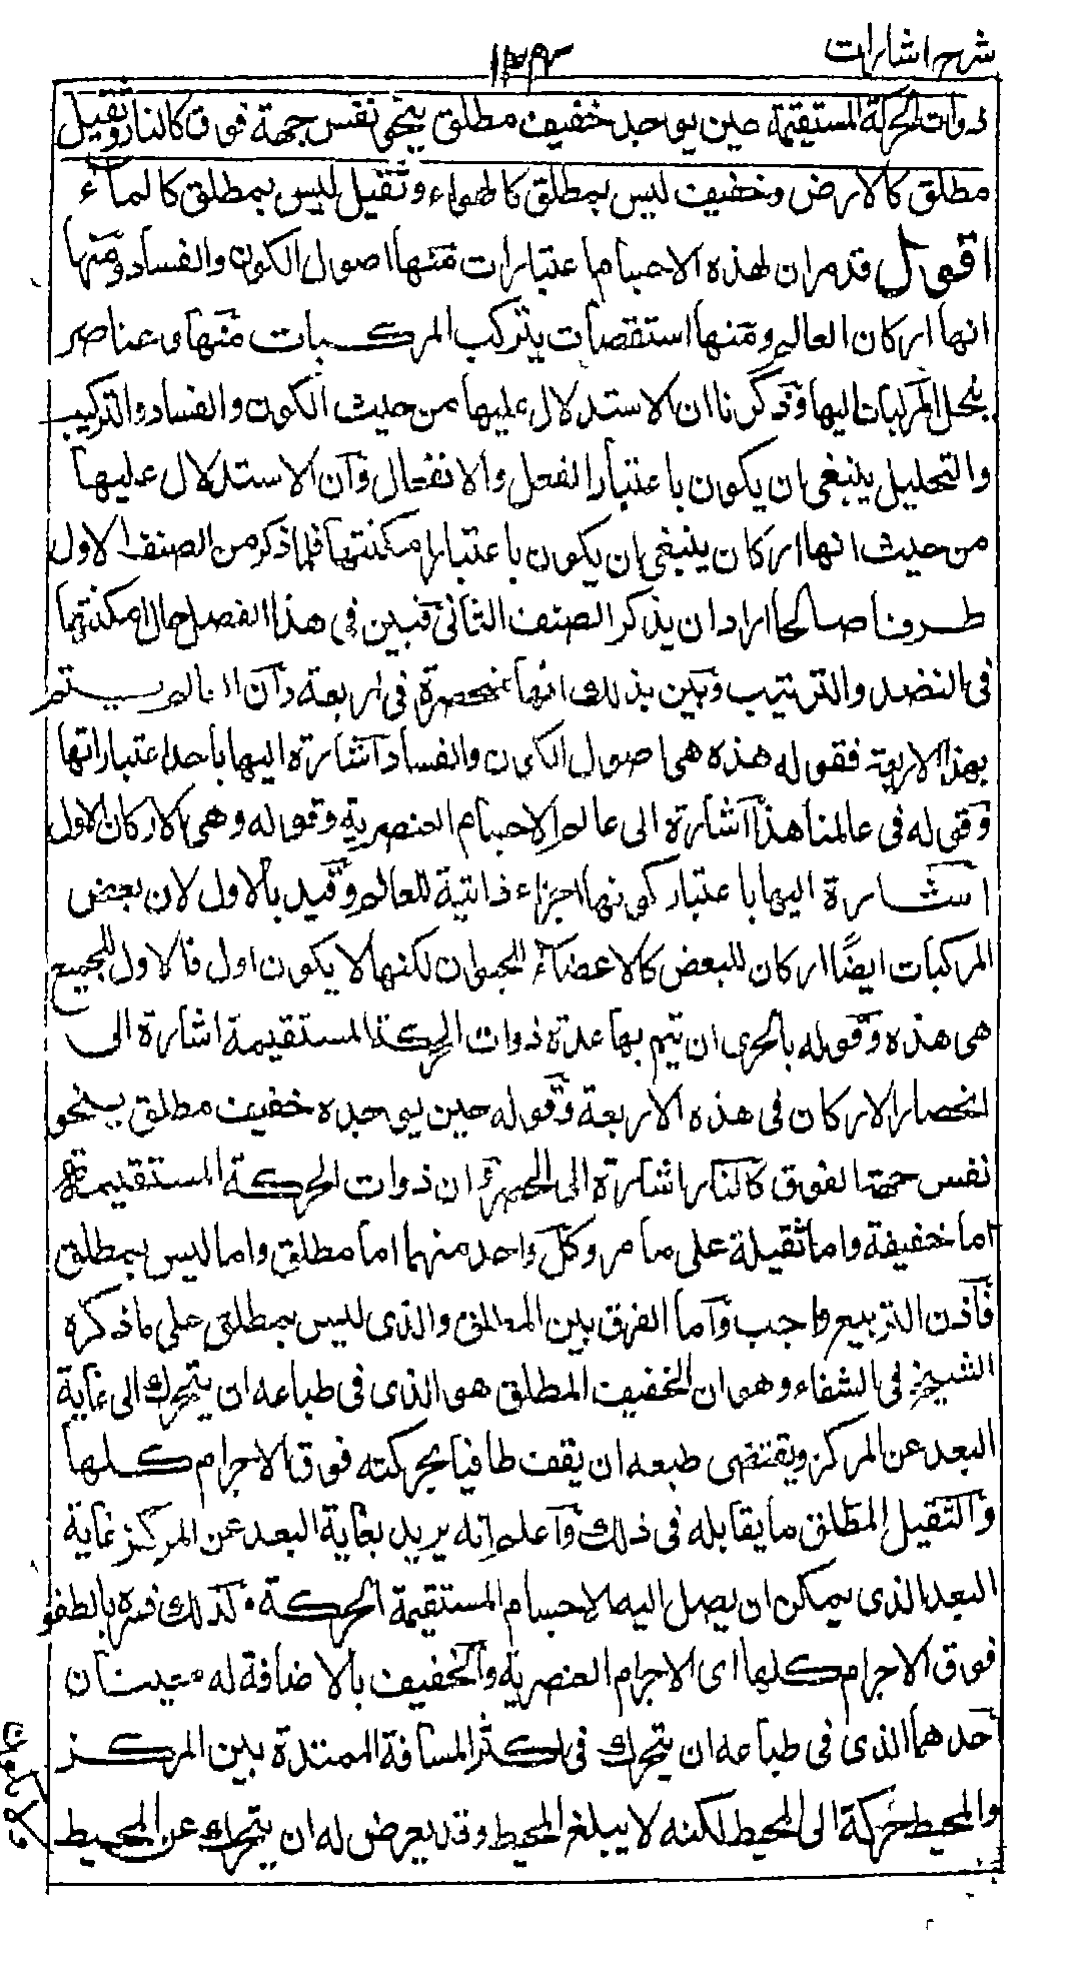 شرح اشارات
١٣٩
ذوات الحركة المستقيمة حين يوجد خفيف مطلق ينحى نفس جهة فوق كالنار وثقيل
مطلق كالارض وخفيف ليس بمطلق كالهواء وثقيل ليس بمطلق كالماء
اقول قد مر ان لهذه الاجسام اعتبارات منها اصول الكون والفساد ومنها
انها اركان العالم ومنها استقصات يتركب المركبات منها وعناصر
ينحل المركبات اليها وذكرنا ان الاستدلال عليها من حيث الكون والفساد والتركيب
والتحليل ينبغى ان يكون باعتبار الفعل والانفعال وان الاستدلال عليها
من حيث انها اركان ينبغى ان يكون باعتبار امكنتها فلما ذكر من الصنف الاول
طرفا صالحا اراد ان يذكر الصنف الثانى فبين فى هذا الفصل حال امكنتها
فى النضد والترتيب وبين بذلك انها منحصرة فى اربعة وان العالم يستتم
بهذا الاربعة فقوله هذه هى اصول الكون والفساد اشارة اليها باحد اعتباراتها
وقوله فى عالمنا هذا اشارة الى عالم الاجسام العنصرية وقوله وهى الاركان الاول
اشارة اليها باعتبار كونها اجزاء ذاتية للعالم وقيد بالاول لان بعض
المركبات ايضًا اركان للبعض كالاعضاء للحيوان لكنها لا يكون اول فالاول للجميع
هى هذه وقوله بالحرى ان يتم بها عدة ذوات الحركة المستقيمة اشارة الى
انحصار الاركان فى هذه الاربعة وقوله حين يوجد خفيف مطلق ينحو
نفس جهة الفوق كالنار اشارة الى الحصر ان ذوات الحركة المستقيمة
اما خفيفة واما ثقيلة على ما مر وكل واحد منهما اما مطلق واما ليس بمطلق
فاذن التربيع واجب واما الفرق بين المطلق والذى ليس بمطلق على ما ذكره
الشيخ فى الشفاء وهو ان الخفيف المطلق هو الذى فى طباعه ان يتحرك الى غاية
البعد عن المركز ويقتضى طبعه ان يقف طافيا بحركته فوق الاجرام كلها
والثقيل المطلق ما يقابله فى ذلك واعلم انه يريد بغاية البعد عن المركز غاية
البعد الذى يمكن ان يصل اليه الاجسام المستقيمة الحركة كذلك فسره بالطفو
فوق الاجرام كلها اى الاجرام العنصرية والخفيف بالاضافة له معينان
احدهما الذى فى طباعه ان يتحرك فى اكثر المسافة الممتدة بين المركز
والمحيط حركة الى المحيط لكنه لا يبلغ المحيط وقد يعرض له ان يتحرك عن المحيط